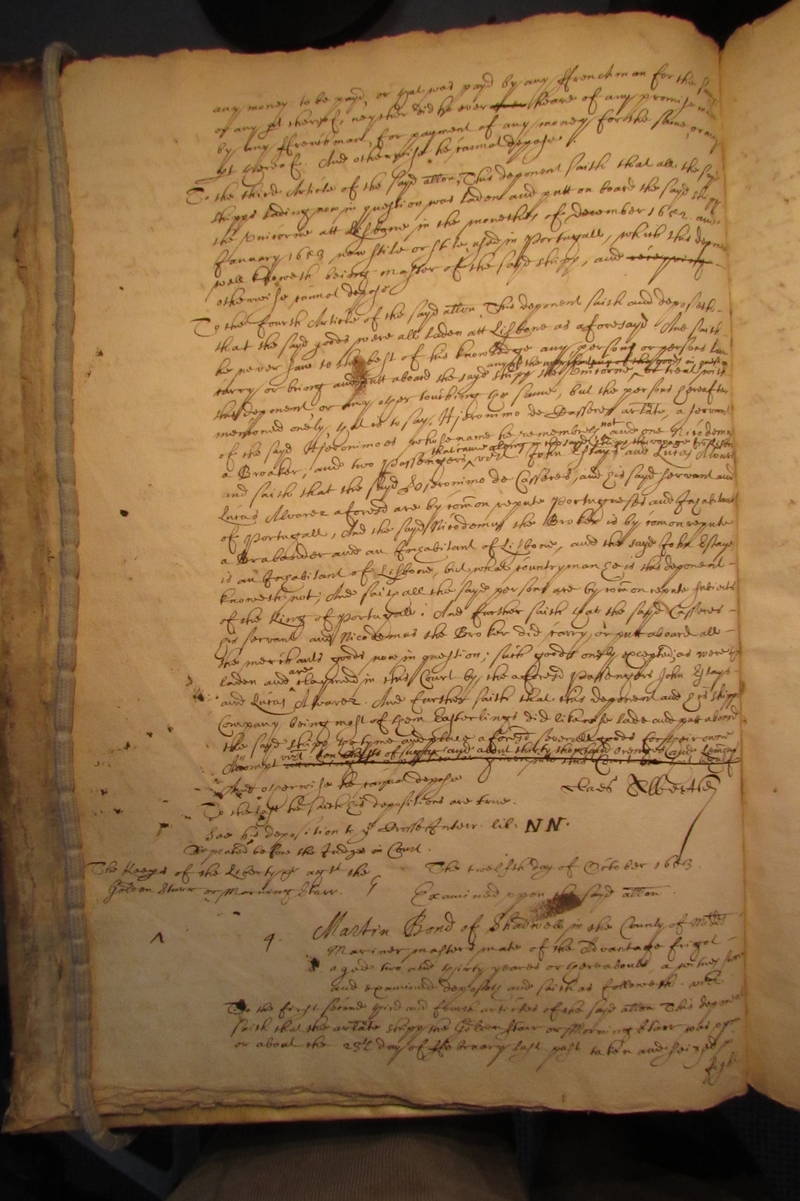 any money to be payd, or that was payd by any ffrenchman for the same
or any pt thereof, neyther did he ever heare of any promise
by any ffrenchman, for payment of any money for the same, or any
pt thereof. And otherwise he cannot depose.
To the third Article of the sayd allon, This deponent saith that all the sayd
shipps lading now in question was laden and putt on board the sayd shipp
the Unicorne att Lisbone in the moneths of december 1652 and
January 1653 new stile or stile used in Portugall, which this deponent
well knoweth being master of the sayd shipp, and
otherwise cannot depose
To the fourth Article of the sayd allon, This deponent saith and deposeth
that the sayd goods were all laden att Lisbone as aforesayd And saith
he never saw to the best of his knowledge any person or persons
carry or bring and putt aboard the sayd shipp the Unicorne or treat with
this deponent or any other touching the same, but the persons hereafter
mentioned onely, that is to say, Hieronimo de Casseres arlate, a servant
of the sayd Hieronimoes whose name he remembers not and one Nicodemus
a Broaker, and two Passengers vizt John Estays and Lucas Alvares
and saith that the sayd Hieronimo de Casseres, and his sayd servant and
Lucas Alvarez aforesd are by comon repute Portugueses and Inhabitants
of Portugall, And the sayd Nicodemus the Broker is by comon repute
a Brabander and an Inhabitant of Lisbone, and the sayd John Estays
is an Inhabitant of Lisbone, but what countryman he is this deponent
knoweth not; And saith all the sayd persons are by comon repute subiects
of the King of Portugall. And further saith that the sayd Casseres
his servant and Nicodemus the Broker did carry or put aboard all
the merchants goods now in question; such goods onely excepted as were
laden and are claymed in this Court by the aforesd Passengers John Estays
and Lucas Alvarez. And further saith that this deponent and his shipps
Company being most of them Easterlings did likewise lade and put aboard
the sayd shipp the tyme and place aforesd severall goods for their owne
Accompt
And otherwise he cannot depose
Claes Albertsen
To the last he saith his depositions are true.
See his deposition to ye Crosse Interr. lib. NN.
Repeated before the Judge in Court.
The Keeps of the Liberty &c agt the
Golden Starr or Morning Starr.
The twelfth day of October 1653.
Examined uppon the sayd allon.
4.
Martin Bond of Shadwell in the County of Middx
Mariner masters mate of the Advantage frigot
aged two and thirty yeares or thereabouts a witnes sworne
and examined deposeth and saith as followeth. vizt
To the first second third and fourth articles of the said allon This deponent
saith that the arlate shipp the Golden Starr or Morning Starr was
or about the day of ffebruary last past taken and seized